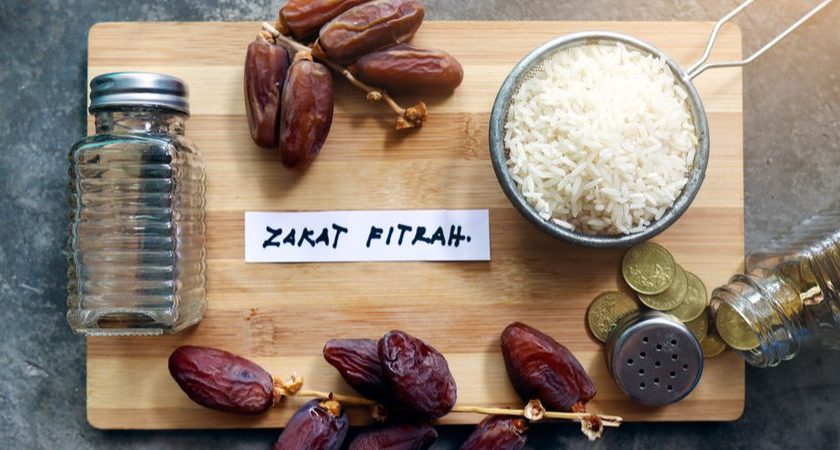 ZAKAT FITRAH.